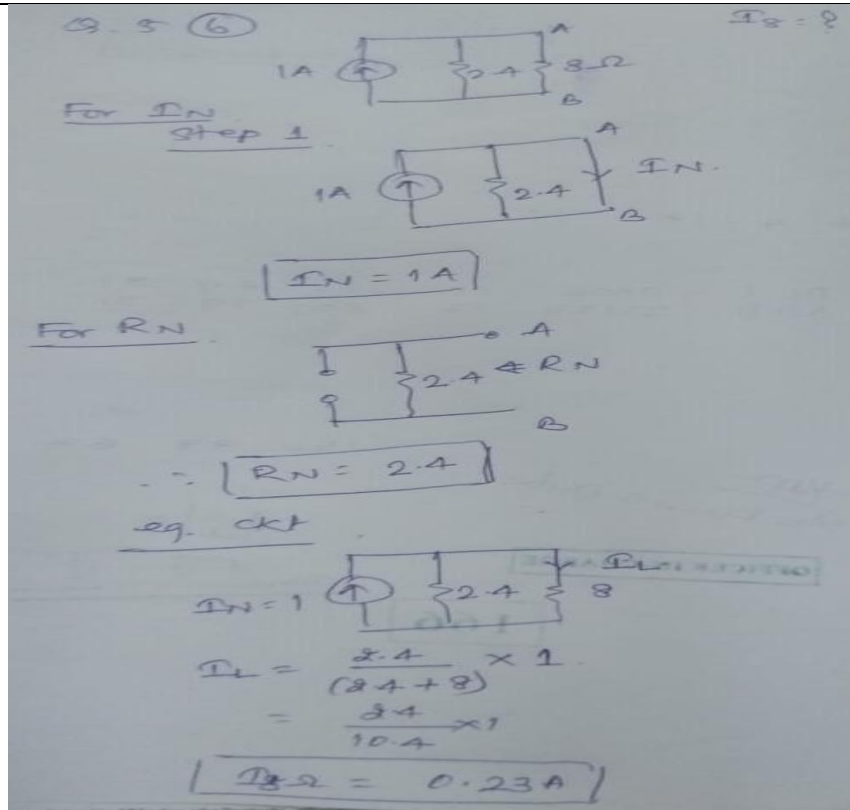 Q. 5 6 I8 = ?
A
1A 2.4 8Ω
B
For IN
Step 1
A
1A 2.4 IN.
B
IN = 1A
For RN
A
2.4 RN
B
∴ RN = 2.4
eq. ckt
IL
IN = 1 2.4 8
IL = 2.4 / (2.4 + 8) × 1
= 2.4 / 10.4 × 1
I8Ω = 0.23A